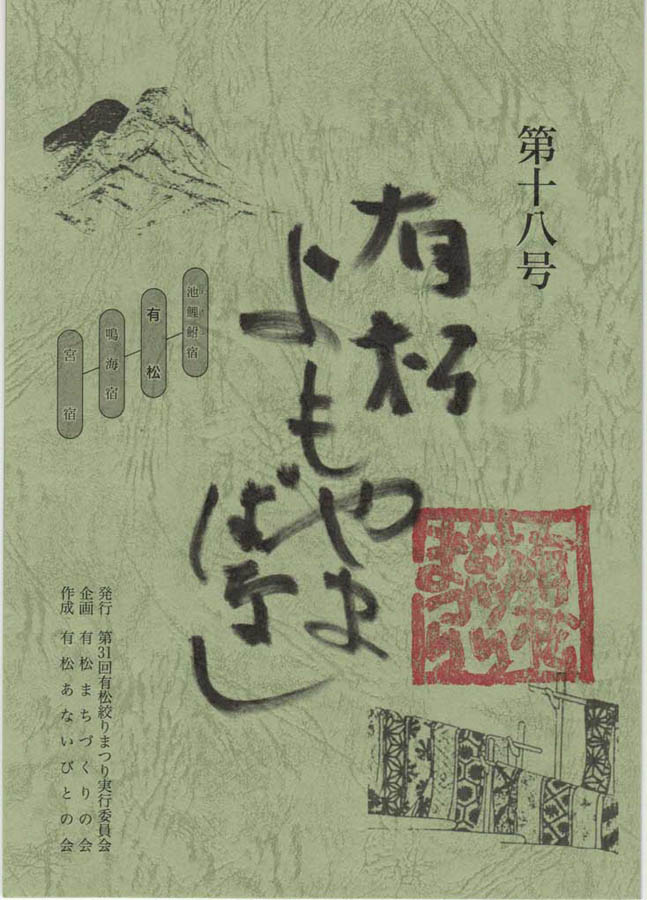 第十八号
有松
よもやま
ばなし
池鯉鮒宿
有松
鳴海宿
宮宿
有松
絞り
まつり
発行 第31回有松絞りまつり実行委員会
企画 有松まちづくりの会
作成 有松あないびとの会